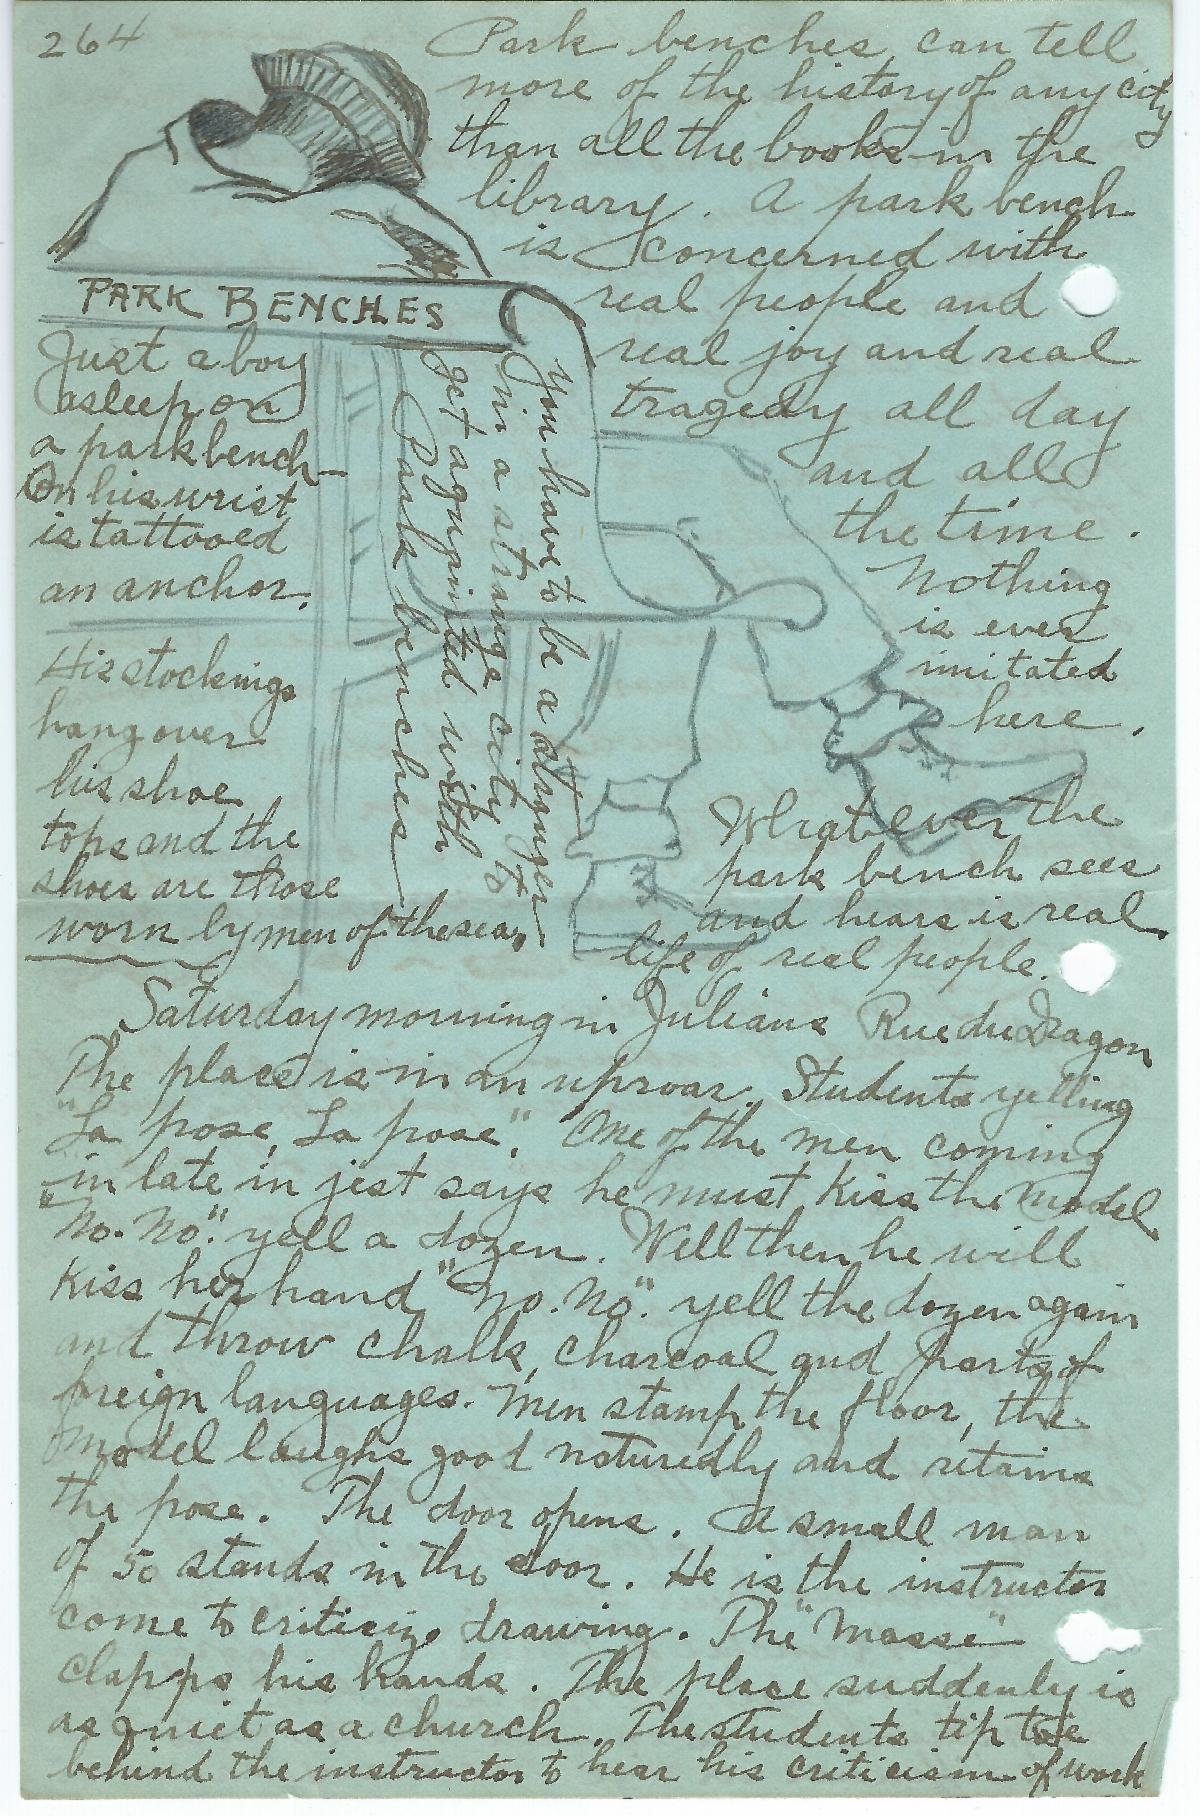 264
Park benches can tell
more of the history of any city
than all the books in the
library. A park bench
is concerned with
real people and
real joy and real
tragedy all day
and all
the time.
Nothing
is ever
imitated
here.
Whatever the
park bench sees
and hears is real
life of real people.
PARK BENCHES
Just a boy
asleep on
a park bench—
On his wrist
is tattooed
an anchor.
His stockings
hang over
his shoe
tops and the
shoes are those
worn by men of the sea,
You have to be a stranger
in a strange city to
get aquainted with
Park benches
Saturday morning in Julians Rue du Dragon
The place is in an uproar. Students yelling
"La pose, La pose". One of the men coming
in late in jest says he must kiss the model
"No. No". yell a dozen. Well then he will
kiss her hand "No. No". yell the dozen again
and throw chalk, charcoal and parts of
foreign languages. Men stamp the floor, the
model laughs good naturedly and retains
the pose. The door opens. A small man
of 50 stands in the door. He is the instructor
come to criticize drawing. The "Masse"
clapps his hands. The place suddenly is
as quiet as a church. The students tip toe
behind the instructor to hear his criticism of work